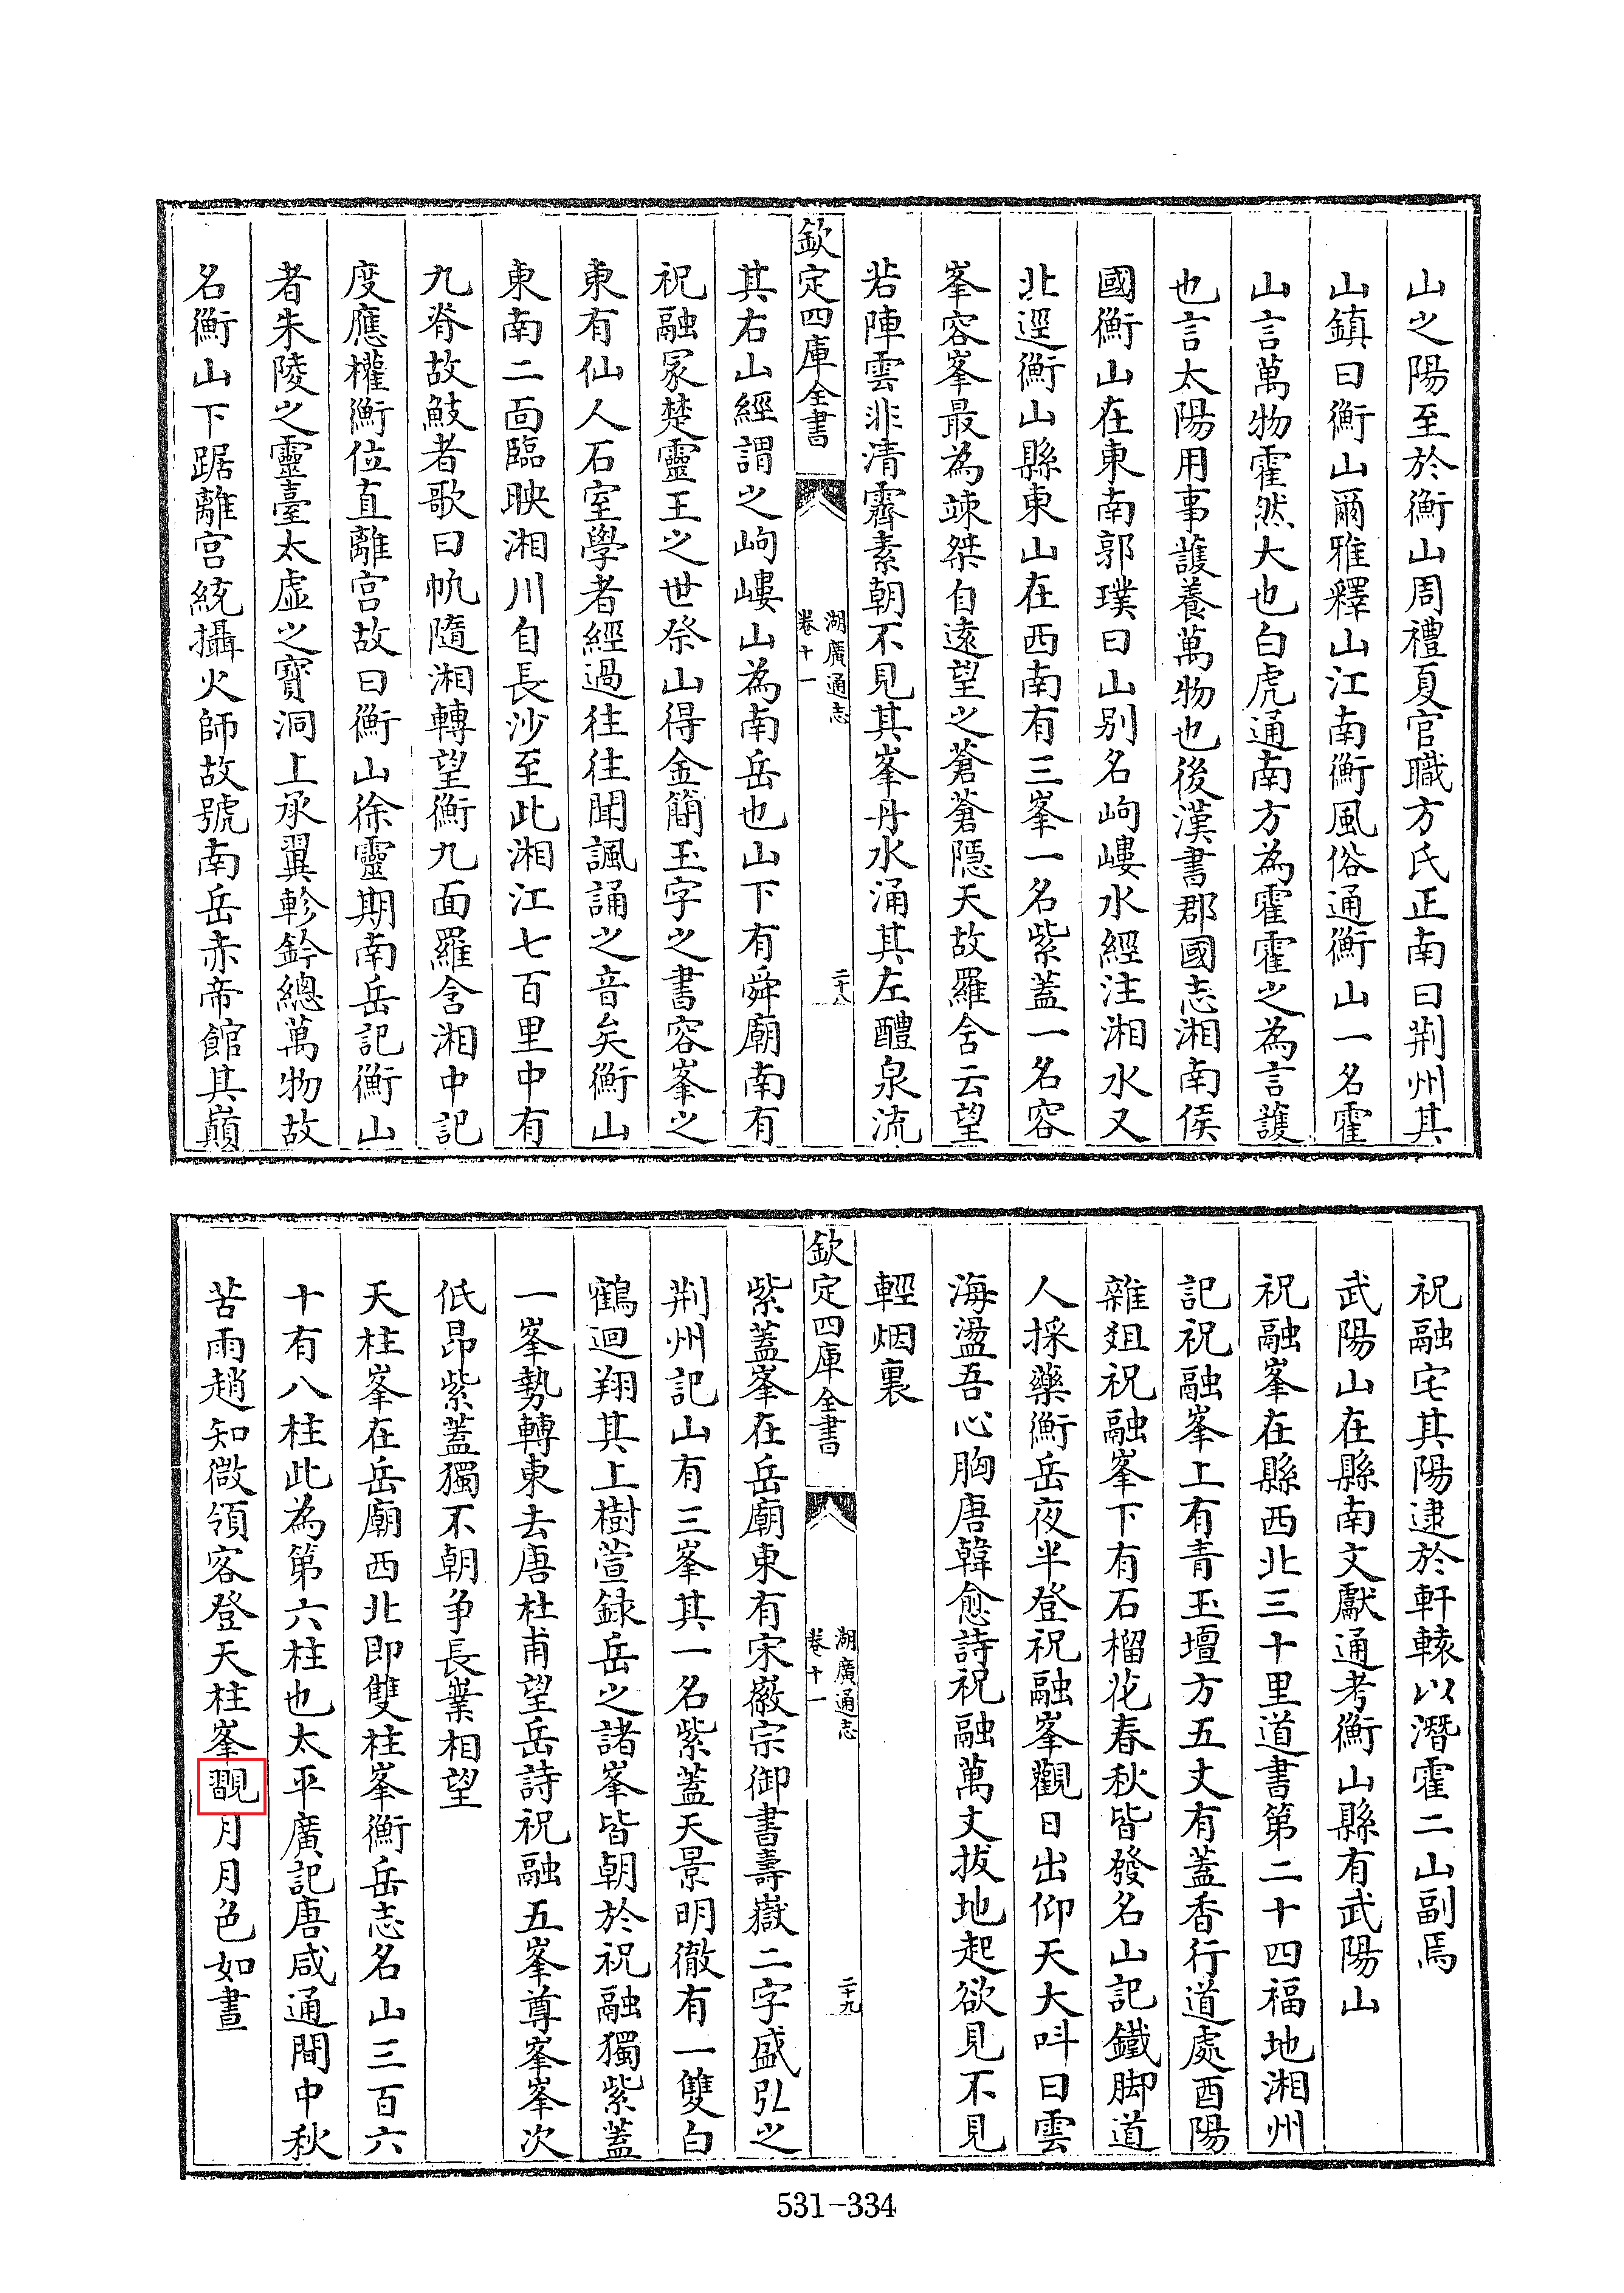 山之陽至於衡山周禮夏官職方氏正南曰荆州其
山鎮曰衡山爾雅釋山江南衡風俗通衡山一名霍
山言萬物霍然大也白虎通南方為霍霍之為言護
也言太陽用事護養萬物也後漢書郡國志湘南侯
國衡山在東南郭璞曰山别名岣嶁水經注湘水又
北逕衡山縣東山在西南有三峯一名紫蓋一名容
峯容峯最為竦桀自遠望之蒼蒼隱天故羅含云望
若陣雲非清霽素朝不見其峯丹水涌其左醴泉流
欽定四庫全書
湖廣通志
卷十一
二十八
其右山經謂之岣嶁山為南岳也山下有舜廟南有
祝融冢楚靈王之世山得金簡玉字之書容峯之
東有仙人石室學者經過往往聞諷誦之音矣衡山
東南二面臨映湘川自長沙至此湘江七百里中有
九脊故鮁者歌曰帆隨湘轉望衡九面羅含湘中記
度應權衡位直離宫故曰衡山徐靈期南岳記衡山
者朱陵之靈臺太虚之寶洞上承翼軫鈐總萬物故
名衡山下踞離宫統攝火師故號南岳赤帝館其巔
祝融宅其陽逮於軒轅以潛霍二山副焉
武陽山在縣南文獻通考衡山縣有武陽山
祝融峯在縣西北三十里道書第二十四福地湘州
記祝融峯上有青玉壇方五丈有蓋香行道處酉陽
雜爼祝融峯下有石榴花春秋皆發名山記鐵脚道
人採藥衡岳夜半登祝融峯觀日出仰天大呌曰雲
海盪吾心胸唐韓愈詩祝融萬丈拔地起欲見不見
輕烟裏
欽定四庫全書
湖廣通志
卷十一
二十九
紫蓋峯在岳廟東有宋徽宗御書壽嶽二字盛弘之
荆州記山有三峯其一名紫蓋天景明徹有一雙白
鶴迴翔其上樹萱録岳之諸峯皆朝於祝融獨紫蓋
一峯勢轉東去唐杜甫望岳詩祝融五峯尊峯峯次
低昂紫蓋獨不朝争長業相望
天柱峯在岳廟西北即雙柱峯衡岳志名山三百六
十有八柱此為第六柱也太平廣記唐咸通間中秋
苦雨趙知微領客登天柱峯翫月月色如晝
531-334